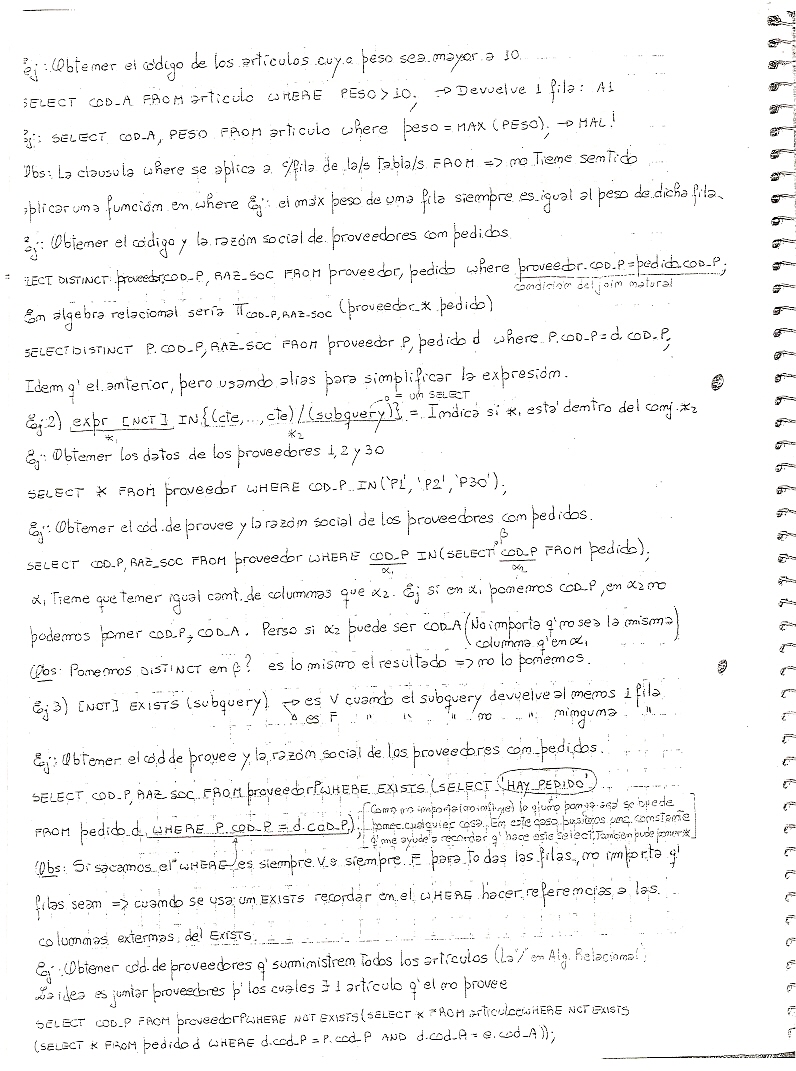 Ej: Obtener el código de los artículos cuyo peso sea mayor a 10
SELECT COD_A FROM artículo WHERE PESO>10; → Devuelve 1 fila: A1
Ej: SELECT COD_A, PESO FROM artículo where peso = MAX (PESO); → MAL!
Obs: La clausula where se aplica a c/fila de la/s tabla/s FROM => no Tiene sentido
aplicar una función en where Ej: el máx peso de una fila siempre es igual al peso de dicha fila.
Ej: Obtener el código y la razón social de proveedores con pedidos
LECT DISTINCT proveedor.COD_P, RAZ_SOC FROM proveedor, pedido where proveedor.COD_P = pedido.COD_P;
condición del join natural
En algebra relacional sería π COD_P, RAZ_SOC (proveedor * pedido)
SELECT DISTINCT P.COD_P, RAZ_SOC FROM proveedor P, pedido d where P.COD_P = d.COD_P;
Idem q' el anterior, pero usando alias para simplificar la expresión.
→ = un SELECT
Ej 2) expr [NOT] IN {(cte,..., cte) / (subquery)} = Indica si *1 está dentro del conj. *2
*1 *2
Ej: Obtener los datos de los proveedores 1, 2 y 30
SELECT * FROM proveedor WHERE COD_P IN ('P1', 'P2', 'P30');
Ej: Obtener el cód. de provee y la razón social de los proveedores con pedidos.
β
SELECT COD_P, RAZ_SOC FROM proveedor WHERE COD_P IN (SELECT COD_P FROM pedido);
α1 α2
α1 Tiene que tener igual cant. de columnas que α2. Ej si en α1 ponemos COD_P, en α2 no
podemos poner COD_P, COD_A. Perso si α2 puede ser COD_A (No importa q' no sea la misma
columna q' en α1)
Obs: Ponemos DISTINCT en β? es lo mismo el resultado => no lo ponemos.
Ej 3) [NOT] EXISTS (subquery) → es V cuando el subquery devuelve al menos 1 fila
es F " " " no " ninguna "
Ej: Obtener el cód de provee y la razón social de los proveedores con pedidos.
SELECT COD_P, RAZ_SOC FROM proveedor P WHERE EXISTS (SELECT 'HAY PEDIDO'
FROM pedido d WHERE P.COD_P = d.COD_P);
[Como no importa (no influye) lo q' uno ponga acá se puede
poner cualquier cosa. En este caso pusimos una constante
q' me ayude a recordar q' hace este select. Tambien pude poner *]
Obs: Si sacamos el WHERE es siempre V o siempre F para todas las filas, no importa q'
filas sean => cuando se usa un EXISTS recordar en el WHERE hacer referencias a las
columnas externas del EXISTS.
Ej: Obtener cód. de proveedores q' suministren todos los artículos (La "/" en Alg. Relacional)
La idea es juntar proveedores p' los cuales ∄ 1 artículo q' el no provee
SELECT COD_P FROM proveedor P WHERE NOT EXISTS (SELECT * FROM artículo e WHERE NOT EXISTS
(SELECT * FROM pedido d WHERE d.COD_P = P.COD_P AND d.COD_A = e.COD_A));